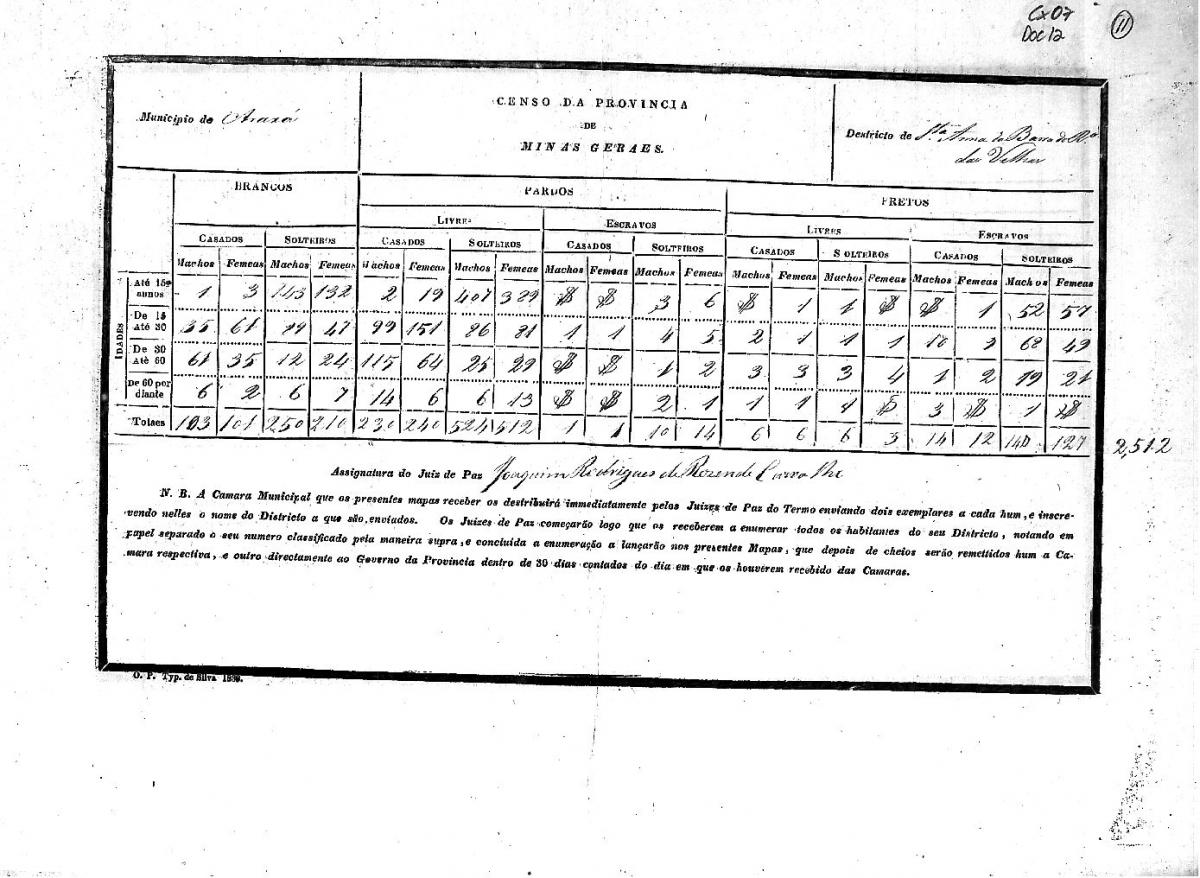 Cx 07
Doc 12
11
Municipio de Araxá
CENSO DA PROVINCIA
DE
MINAS GERAES.
Destricto de Sta Anna da Barra do Ro
das Velhas
BRANCOS PARDOS PRETOS
LIVRES ESCRAVOS LIVRES ESCRAVOS
CASADOS SOLTEIROS CASADOS SOLTEIROS CASADOS SOLTEIROS CASADOS SOLTEIROS CASADOS SOLTEIROS
Machos Femeas Machos Femeas Machos Femeas Machos Femeas Machos Femeas Machos Femeas Machos Femeas Machos Femeas Machos Femeas Machos Femeas
IDADES
Até 15 annos 1 3 143 132 2 19 407 389 $ $ 3 6 $ 1 1 $ $ 1 52 57
De 15 Até 30 35 61 89 47 99 151 86 81 1 1 4 5 2 1 1 1 10 9 68 49
De 30 Até 60 61 35 12 24 115 64 25 29 $ $ 1 2 3 3 3 4 1 2 19 21
De 60 por diante 6 2 6 7 14 6 6 13 $ $ 2 1 1 1 1 $ 3 $ 1 $
Totaes 103 101 250 210 230 240 524 512 1 1 10 14 6 6 6 3 14 12 140 127
2,512
Assignatura do Juiz de Paz Joaquim Rodrigues de Rezende Carvalho
N. B. A Camara Municipal que os presentes mapas receber os destribuirá immediatamente pelos Juizes de Paz do Termo enviando dois exemplares a cada hum, e inscre-
vendo nelles o nome do Districto a que são, enviados. Os Juizes de Paz começarão logo que os receberem a enumerar todos os habitantes do seu Districto, notando em
papel separado o seu numero classificado pela maneira supra, e concluida a enumeração a lançarão nos presentes Mapas, que depois de cheios serão remettidos hum a Ca-
mara respectiva, e outro directamente ao Governo da Provincia dentro de 30 dias contados do dia em que os houverem recebido das Camaras.
O. P. Typ. de Silva